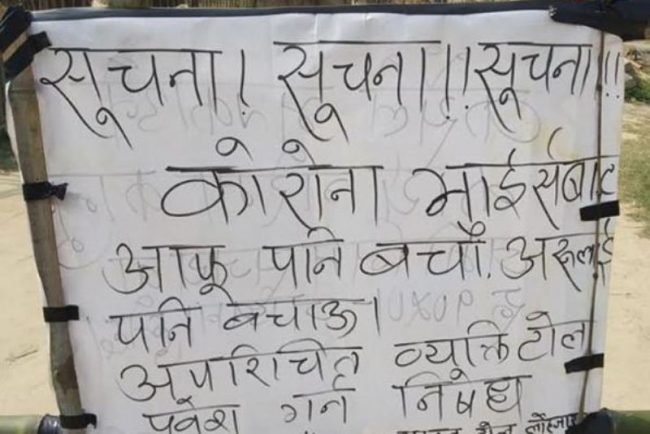 सूचना! सूचना!! सूचना!!!
कोरोना भाईर्सबाट
आफू पनि बचौं, अरूलाई
पनि बचाऊ।
अपरिचित व्यक्ति टोल
प्रवेश गर्न निषेध
टोल